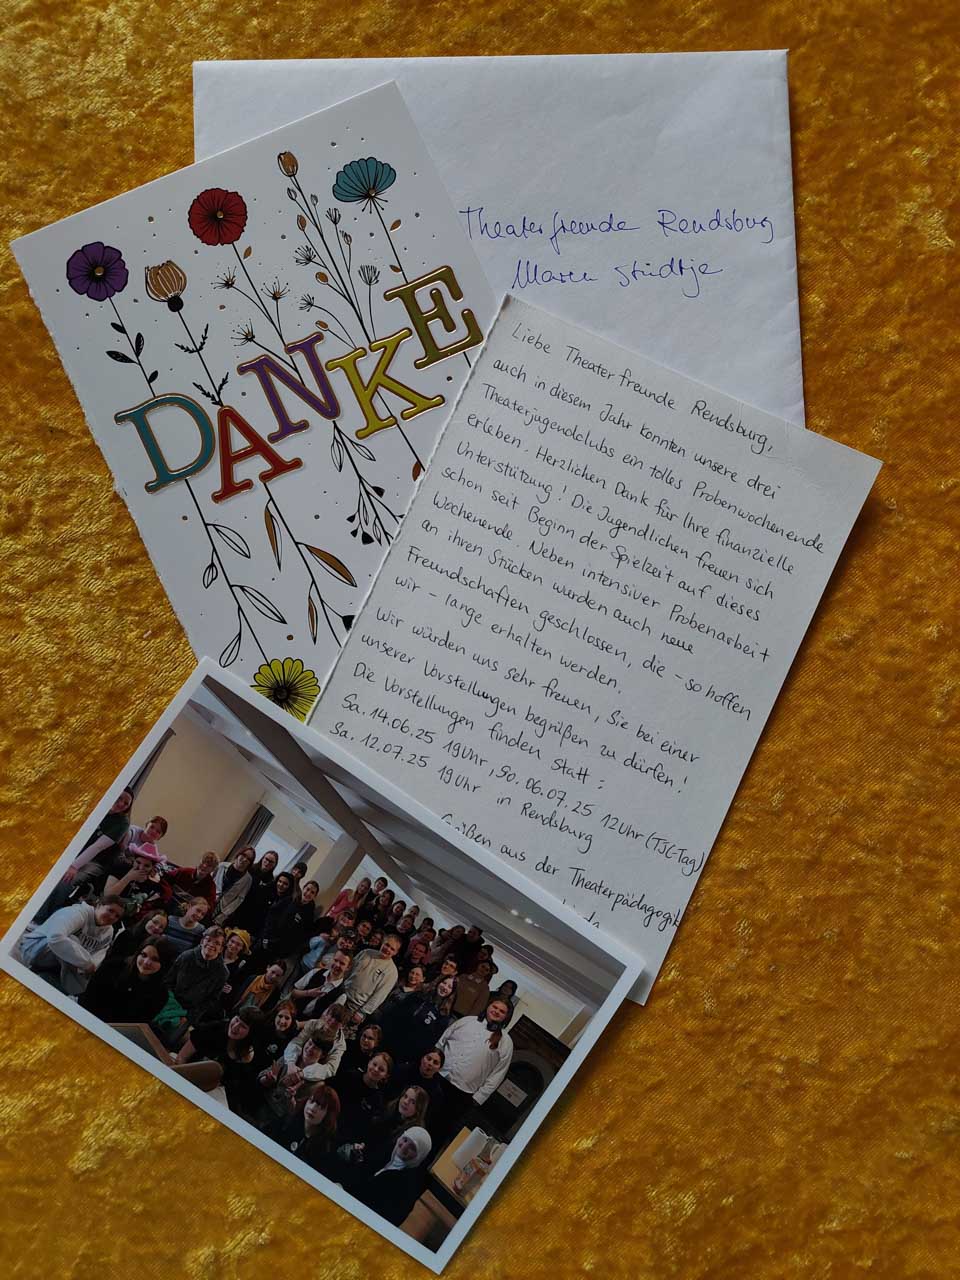 Theaterfreunde Rendsburg
Maren Stüdtje
DANKE
Liebe Theaterfreunde Rendsburg,
auch in diesem Jahr konnten unsere drei
Theaterjugendclubs ein tolles Probenwochenende
erleben. Herzlichen Dank für Ihre finanzielle
Unterstützung! Die Jugendlichen freuen sich
schon seit Beginn der Spielzeit auf dieses
Wochenende. Neben intensiver Probenarbeit
an ihren Stücken wurden auch neue
Freundschaften geschlossen, die - so hoffen
wir - lange erhalten werden.
Wir würden uns sehr freuen, Sie bei einer
unserer Vorstellungen begrüßen zu dürfen!
Die Vorstellungen finden statt:
Sa. 14.06.25 19 Uhr, So. 06.07.25 12 Uhr (TJC-Tag)
Sa. 12.07.25 19 Uhr in Rendsburg
Grüßen aus der Theaterpädagogik